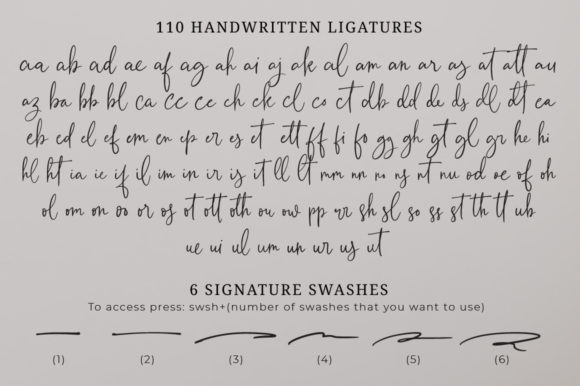 110 HANDWRITTEN LIGATURES
aa ab ad ae af ag ah ai aj ak al am an ar as at att au
az ba bb bl ca cc ce ch ck cl co ct db dd de ds dll dt ea
eb ed el ef em en ep er es et ett ff fi fo gg gh gt gl gr he hi
hl ht ia ie if il im in ir is it ll lt mm nn no ns nt nu od oe of oh
ol om on oo or os ot ott oth ou ow pp rr sh sl so ss st th tt ub
ue ui ul um un ur us ut
6 SIGNATURE SWASHES
To access press: swsh+(number of swashes that you want to use)
(1) (2) (3) (4) (5) (6)